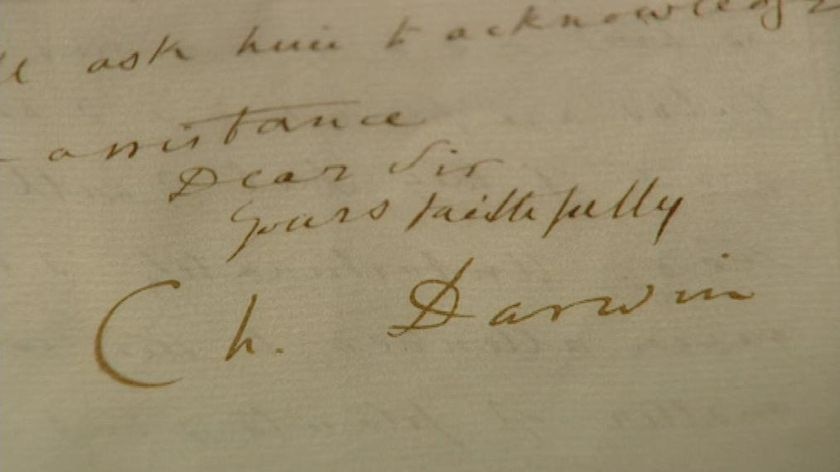 ask him to acknowledge
assistance
Dear Sir
Yours faithfully
Ch. Darwin